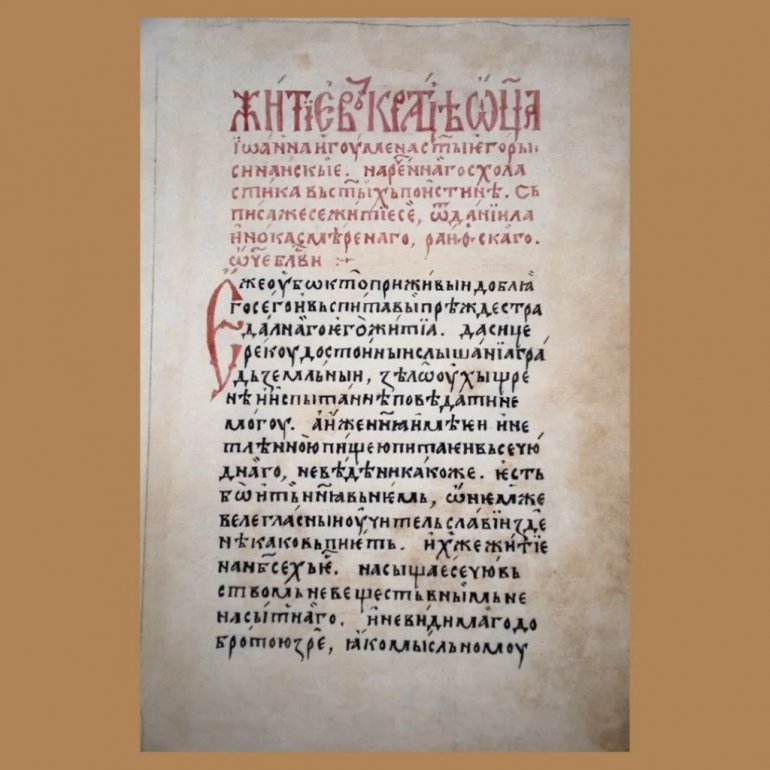 ЖИТЇЕ ВЪКРАТЦѢ Ѿ҃ЦА
їѡанна игоумена ст҃ыѥ горы.
синаискыѥ. нареннаго схола
стика въ ст҃ыхъ поистинѣ. съ
писа же се житїе сѐ, ѿ данїила
инока смѣренаго, раиѳскаго.
ѡч҃е бл҃ви
Єже оубѡ кто̀ приживыи доблꙗ
го сего и въспитавы прѣжде стра
далнаго ѥго̀ житїа. да сице
рекоу достоины и слышанїа гра
дь земльныи, ѕѣлѡ оухыщре
нѣ и испытаннѣ поведати не
могоу. а иже нн҃ꙗ имѣѥи и не
тлѣнною пищею питаѥи въсею̀
днаго, не вѣдѣ никакоже. ѥсть
бѡ и тъ нн҃ꙗ вь нѥмь, ѡ нѥмже
велегласныи оучитель славїи зде
нѣкако вьпиѥть. ихже житїе
на нб҃сех ѥ҃. насыщае се ую вь
ством невещьствьным не
насытнаго. и невидимаго до
бротою зре, ꙗко мысльномоу